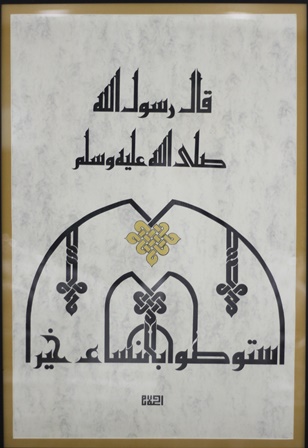 قال رسول الله
صلى الله عليه وسلم
استوصوا بالنساء خيرا